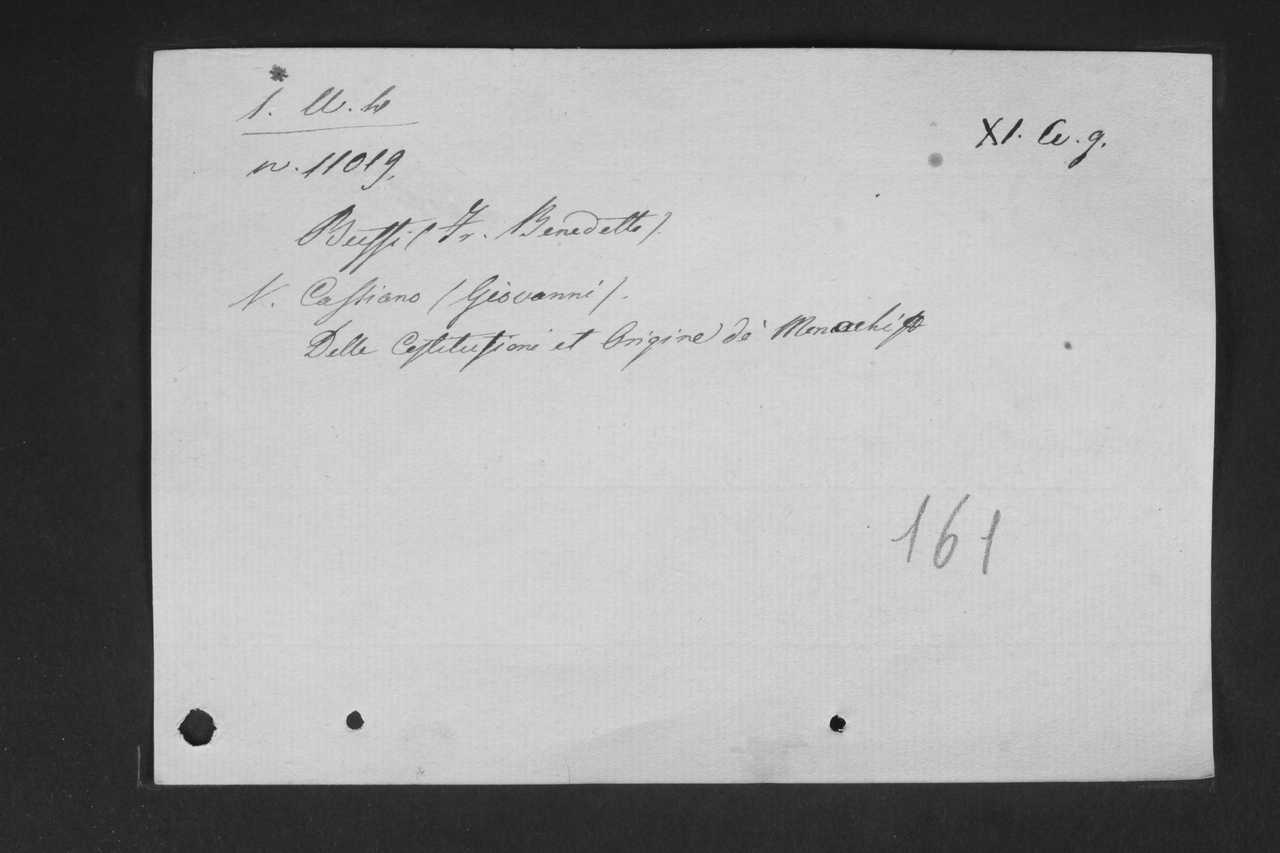 XI. C. g.
n. 11019.
Buffi (Fr. Benedetto).
V. Cassiano (Giovanni).
Delle Costitutioni et Origine de' Monachi
161